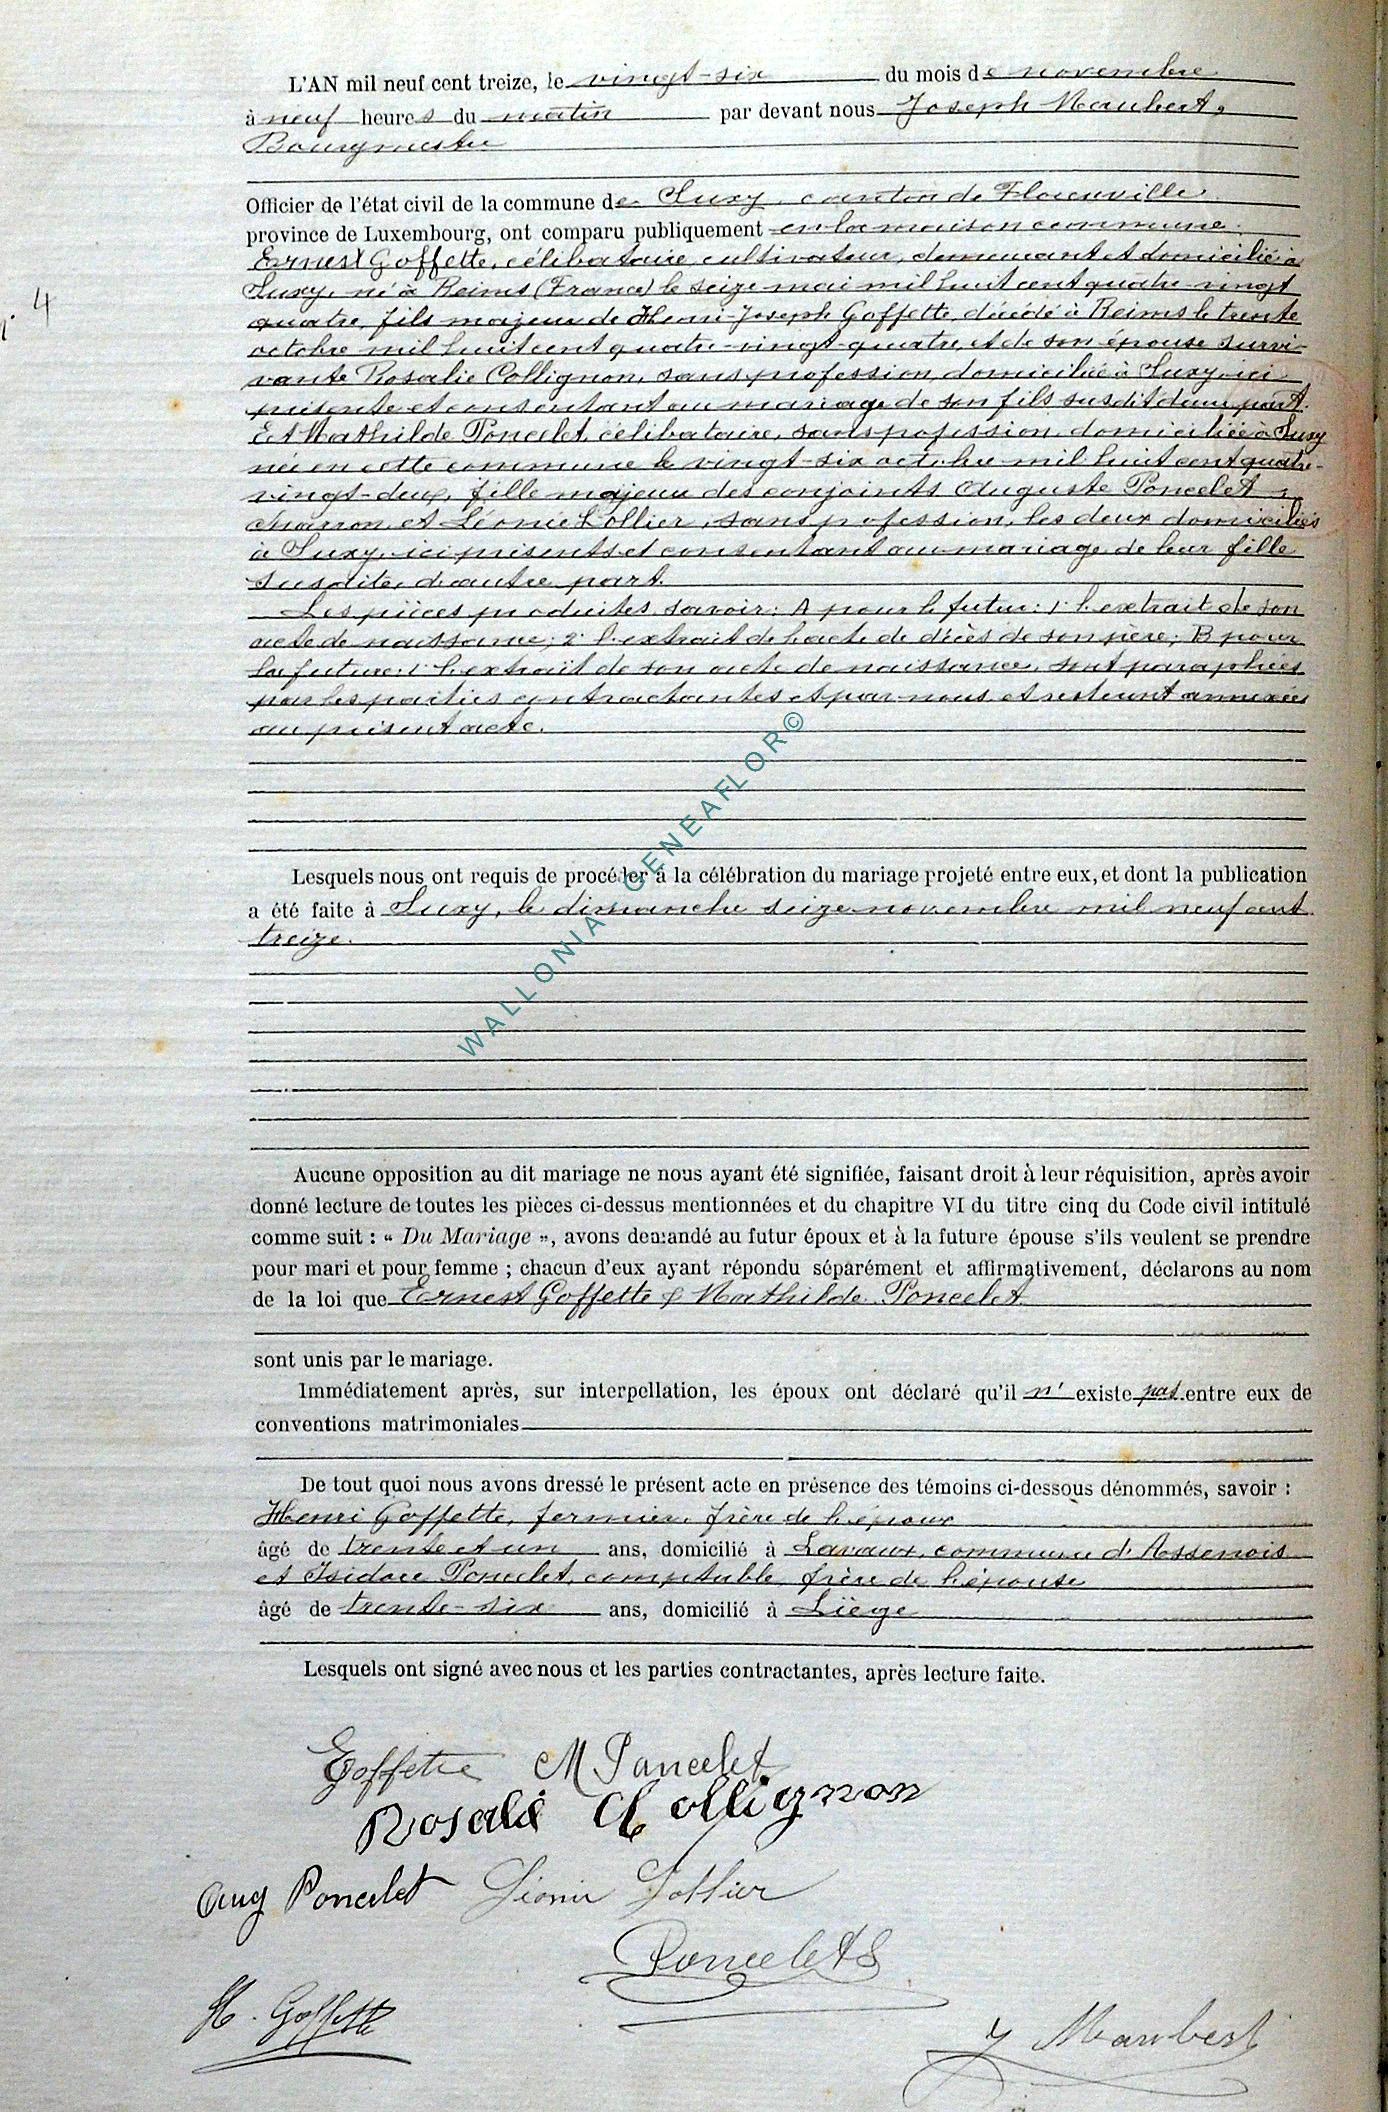 L'AN mil neuf cent treize, le vingt-six du mois de novembre
à neuf heures du matin par devant nous Joseph Maubert,
Bourgmestre
Officier de l'état civil de la commune de Suxy, canton de Florenville
province de Luxembourg, ont comparu publiquement en la maison commune.
Ernest Goffette, célibataire, cultivateur, demeurant et domicilié à
Suxy, né à Reims (France) le seize mai mil huit cent quatre-vingt
4
quatre, fils majeur de Henri-Joseph Goffette, décédé à Reims le trente
octobre mil huit cent quatre-vingt-quatre, et de son épouse survi-
vante Rosalie Collignon, sans profession, domiciliée à Suxy, ici
présente et consentant au mariage de son fils susdit d'une part.
Et Mathilde Poncelet, célibataire, sans profession, domiciliée à Suxy
née en cette commune le vingt-six octobre mil huit cent quatre-
vingt-deux, fille majeure des conjoints Auguste Poncelet,
charron, et Léonie Lollier, sans profession, les deux domiciliés
à Suxy, ici présents et consentant au mariage de leur fille
susdite, d'autre part.
Les pièces produites, savoir: A pour le futur: 1° l'extrait de son
acte de naissance; 2° l'extrait de l'acte de décès de son père; B pour
la future: 1° l'extrait de son acte de naissance, sont paraphées
par les parties contractantes et par nous, et resteront annexées
au présent acte.
WALLONIA GENEAFLOR©
Lesquels nous ont requis de procéder à la célébration du mariage projeté entre eux, et dont la publication
a été faite à Suxy, le dimanche seize novembre mil neuf cent
treize.
Aucune opposition au dit mariage ne nous ayant été signifiée, faisant droit à leur réquisition, après avoir
donné lecture de toutes les pièces ci-dessus mentionnées et du chapitre VI du titre cinq du Code civil intitulé
comme suit : « Du Mariage », avons demandé au futur époux et à la future épouse s'ils veulent se prendre
pour mari et pour femme ; chacun d'eux ayant répondu séparément et affirmativement, déclarons au nom
de la loi que Ernest Goffette & Mathilde Poncelet
sont unis par le mariage.
Immédiatement après, sur interpellation, les époux ont déclaré qu'il n'existe pas entre eux de
conventions matrimoniales
De tout quoi nous avons dressé le présent acte en présence des témoins ci-dessous dénommés, savoir :
Henri Goffette, fermier, frère de l'époux
âgé de trente et un ans, domicilié à Lavaux, commune d'Assenois
et Isidore Poncelet, comptable, frère de l'épouse
âgé de trente-six ans, domicilié à Liège
Lesquels ont signé avec nous et les parties contractantes, après lecture faite.
EGoffette M Poncelet
Rosalie Collignon
Aug Poncelet Léonie Lollier
Poncelet
H. Goffette
J Maubert